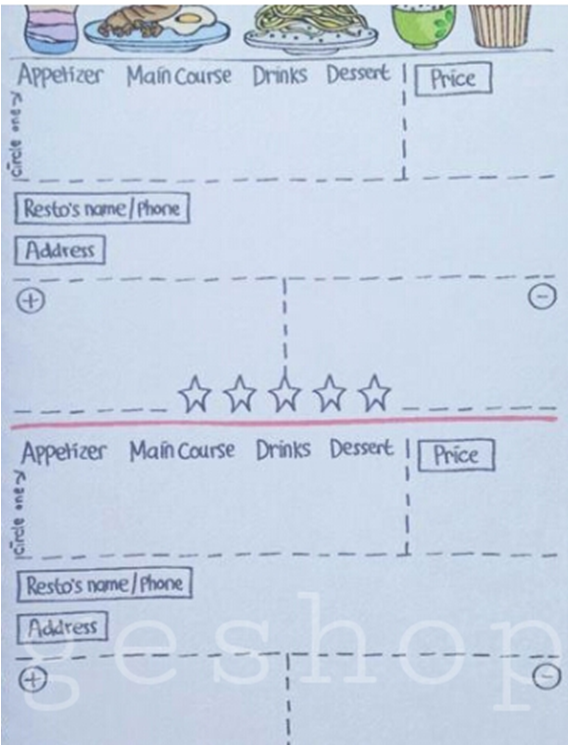 Appetizer Main Course Drinks Dessert Price
Circle one
Resto's name/Phone
Address
+ -
Appetizer Main Course Drinks Dessert Price
Circle one
Resto's name/Phone
Address
geshop
+ -